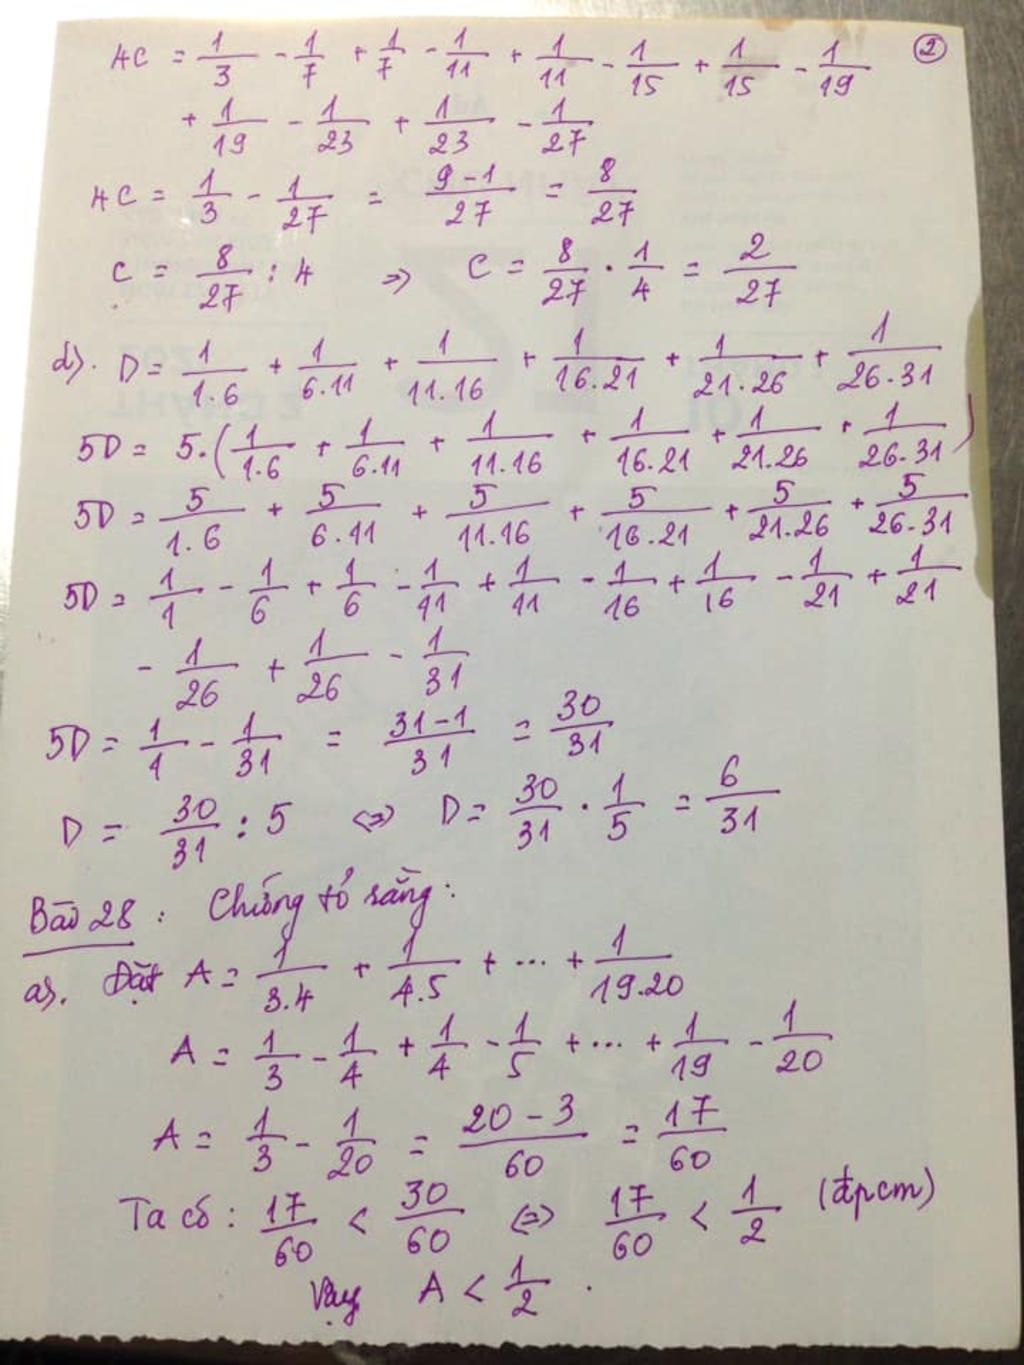 ②
4C = 1/3 - 1/7 + 1/7 - 1/11 + 1/11 - 1/15 + 1/15 - 1/19
+ 1/19 - 1/23 + 1/23 - 1/27
4C = 1/3 - 1/27 = (9-1)/27 = 8/27
C = 8/27 : 4 => C = 8/27 . 1/4 = 2/27
d). D = 1/1.6 + 1/6.11 + 1/11.16 + 1/16.21 + 1/21.26 + 1/26.31
5D = 5.(1/1.6 + 1/6.11 + 1/11.16 + 1/16.21 + 1/21.26 + 1/26.31)
5D = 5/1.6 + 5/6.11 + 5/11.16 + 5/16.21 + 5/21.26 + 5/26.31
5D = 1/1 - 1/6 + 1/6 - 1/11 + 1/11 - 1/16 + 1/16 - 1/21 + 1/21
- 1/26 + 1/26 - 1/31
5D = 1/1 - 1/31 = (31-1)/31 = 30/31
D = 30/31 : 5 <=> D = 30/31 . 1/5 = 6/31
Bài 28 : Chứng tỏ rằng :
a). Đặt A = 1/3.4 + 1/4.5 + ... + 1/19.20
A = 1/3 - 1/4 + 1/4 - 1/5 + ... + 1/19 - 1/20
A = 1/3 - 1/20 = (20-3)/60 = 17/60
Ta có : 17/60 < 30/60 <=> 17/60 < 1/2 (đpcm)
Vậy A < 1/2 .